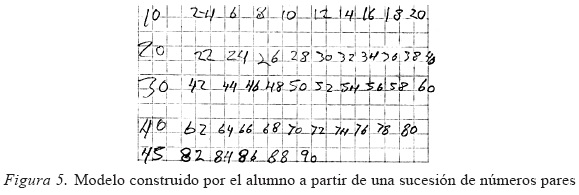 10 2 4 6 8 10 12 14 16 18 20
20 22 24 26 28 30 32 34 36 38 40
30 42 44 46 48 50 52 54 56 58 60
40 62 64 66 68 70 72 74 76 78 80
45 82 84 86 88 90
Figura 5. Modelo construido por el alumno a partir de una sucesión de números pares